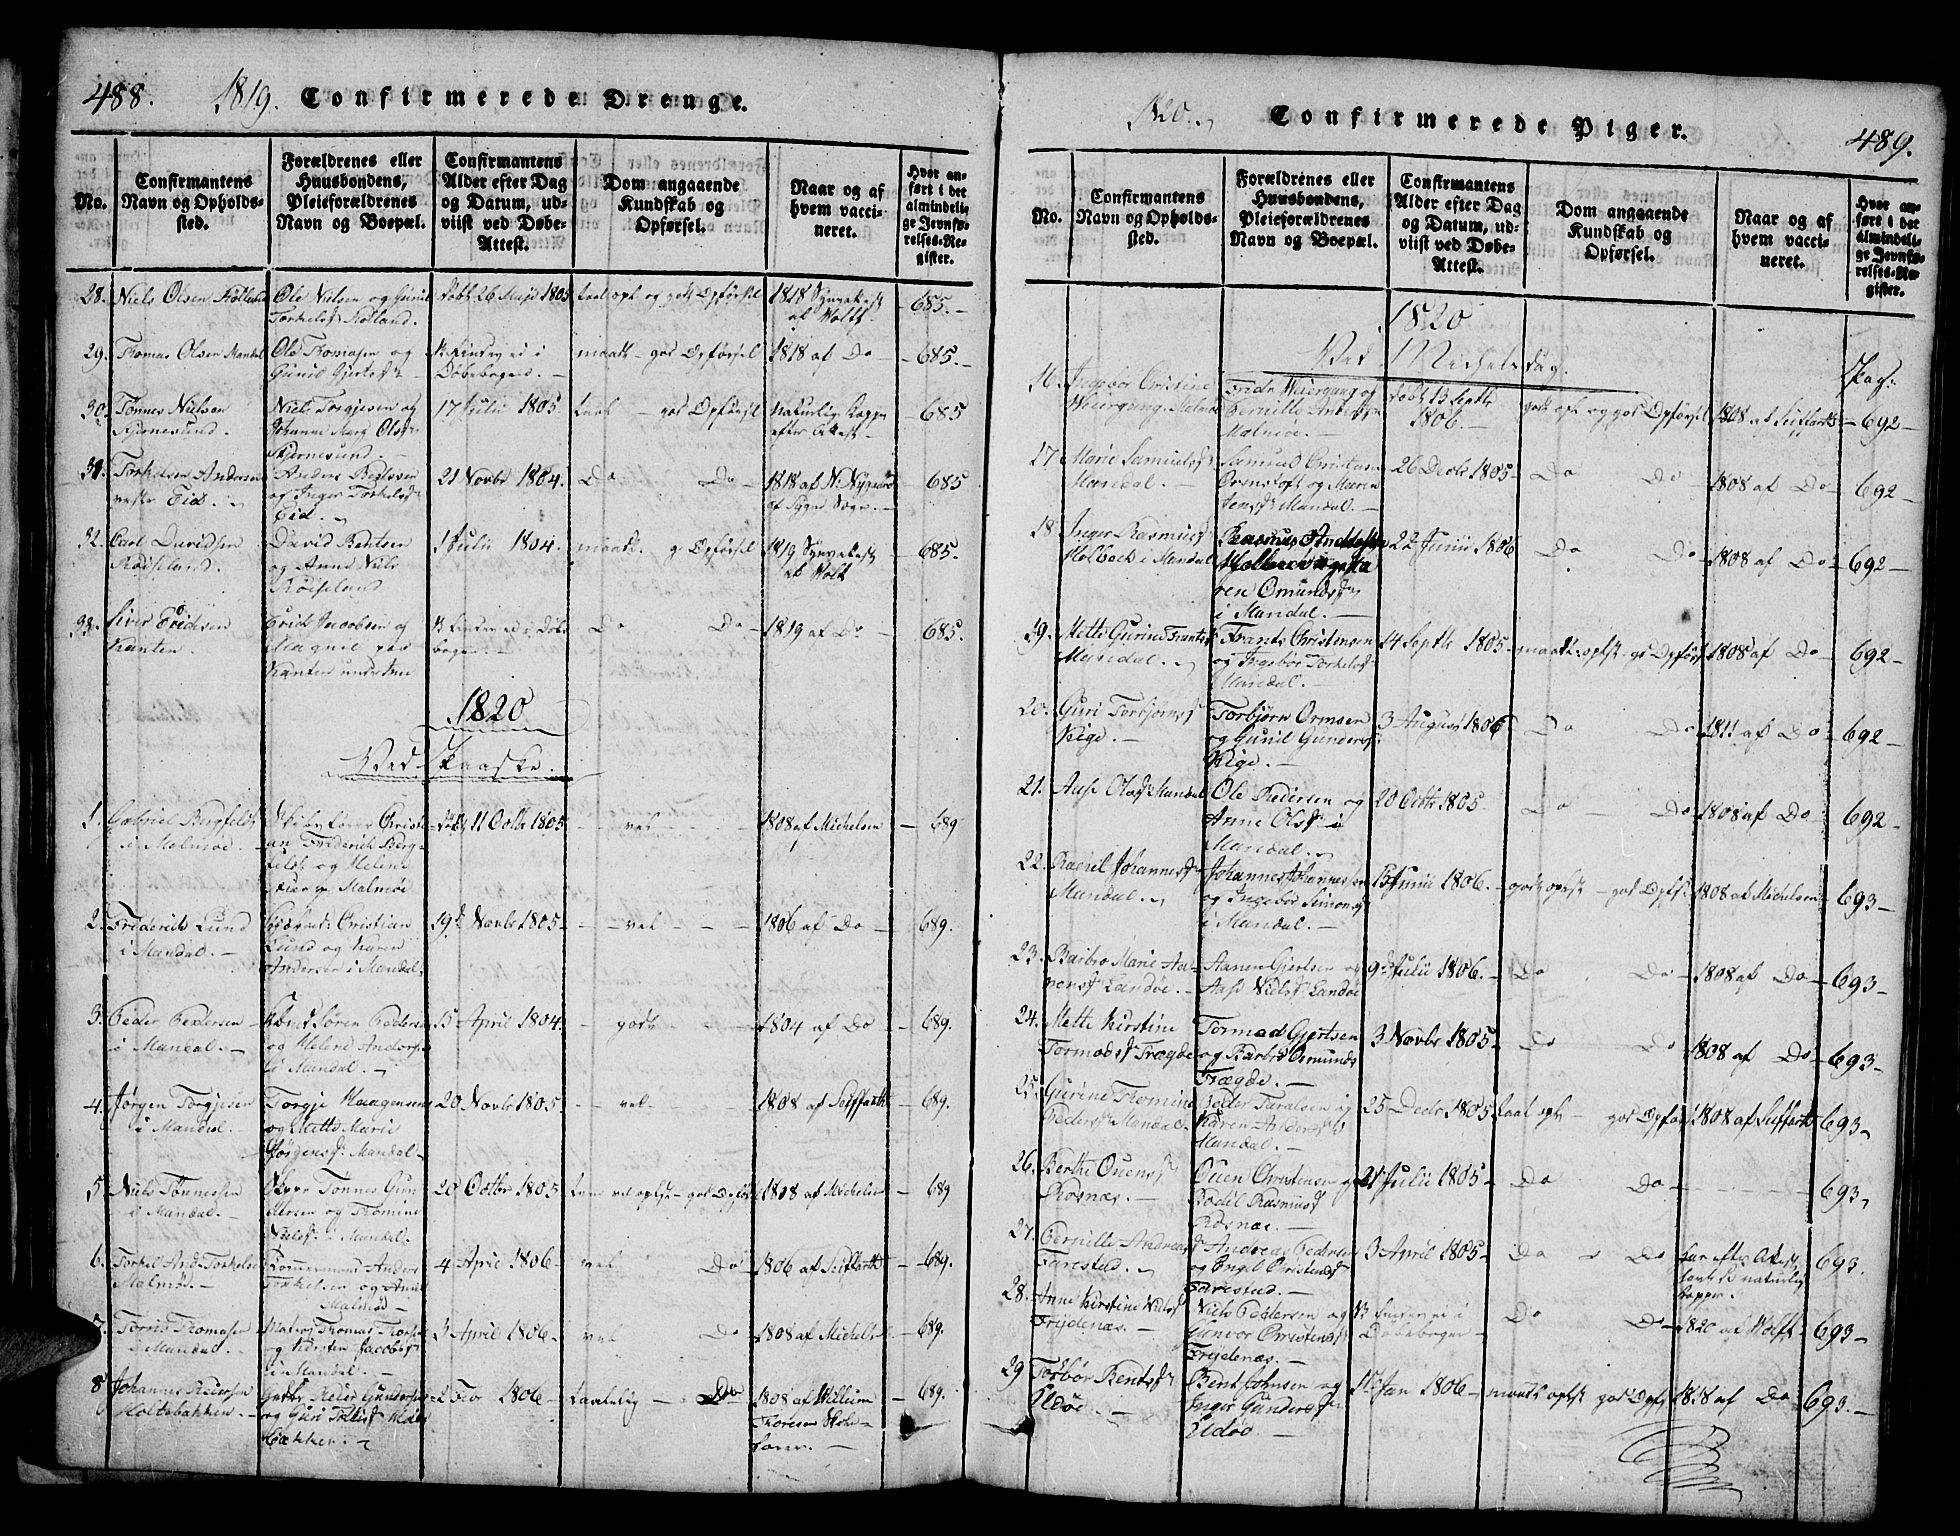 488. 1819. Confirmerede Drenge.
No.
Confirmantens
Navn og Opholds-
sted.
Forældrenes eller
Huusbondens,
Pleieforældrenes
Navn og Boepæl.
Confirmantens
Alder efter Dag
og Datum, ud-
viist ved Døbe-
Attest.
Dom angaaende
Kundskab og
Opførsel.
Naar og af
hvem vacci-
neret.
Hvor an-
ført i det
almindeli-
ge Jevnfø-
relses-Re-
gister.
28. Niels Olsen Holland
Ole Nielsen og Guril
Torkelsd Holland.
26 Maji 1805
og godt Opførsel
1818
af Wolff
685.
29. Thomas Olsen Mandal
Ole Thomasen og
Guril
i
Døbebogen.
maadl. god Opførsel
1818 af Do
685.
30. Tønnes Nielsen
Skjernesund.
Niels Torgjesen og
Johanne Marg Olsd
Skjernesund.
17 Julii 1805
god Opførsel
Naturlig Kopper
efter Attest
685
31. Torkelsen Andersen
Eid.
Anders
og Inger Torkelsd
Eid.
21 Novbr 1804.
Do Do
1818 af N. Nygaard
685
32. Carl Davidsen
Røiseland.
David Bentsen
og Anne Niels
Røiseland
1 Julii 1804.
maadl. g Opførsel
1819
af Wolff
685.
33. Siver Eridsen
Kanten.
Erich Jacobsen og
Maguil
Kanten
i Døbe
bogen
Do Do
1819 af Do
685.
1820
Ved Paaske.
1. Gabriel Bergfeldt
i Malmøe.
Christi-
an Friderich Berg-
feldt og Helene
Malmøe
11 Octbr 1805
vel
1808 af Michelsen
689
2. Friderich Lund
i Mandal.
Cristian
Lund og Karen
Andersen i Mandal.
19d Novbr 1805
vel
1806 af Do
689.
3. Peder Pedersen
i Mandal.
Søren Pedersen
og Helene Anders
i Mandal.
15 April 1804.
godt
1804 af Do
689.
4. Jørgen Torgjesen
i Mandal.
Torgje Haagensen
og Mette Marie
Jørgensd: Mandal
20 Novbr 1805
vel
1808 af Seiffarth
689.
5. Niels Tønnessen
i Mandal.
Tønnes Gun
dersen og Thomine
Nielsd. i Mandal.
20 Octbr 1805
vel god
1808 af Michelsen
689
6. Torkel And. Torkelsen
Malmøe.
Anders
Torkelsen og
Malmøe
4 April 1806
vel Do
1806 af Seiffarth
689.
7. Torris Thomasen
i Mandal.
Thomas Torris
og Kirsten Jacobsd
i Mandal.
3 April 1806
vel Do
1808 af Michelsen
689.
8 Johannes Pedersen
Holtebakken.
Peder Gunders
og Guri
bakken.
2 Fbr 1806
taalelig Do
1808 af Willum
Thoresen
689.
1820. Confirmerede Piger. 489.
No.
Confirmantens
Navn og Opholds-
sted.
Forældrenes eller
Huusbondens,
Pleieforældrenes
Navn og Boepæl.
Confirmantens
Alder efter Dag
og Datum, ud-
viist ved Døbe-
Attest.
Dom angaaende
Kundskab og
Opførsel.
Naar og af
hvem vacci-
neret.
Hvor an-
ført i det
almindeli-
ge Jevnfø-
relses-Re-
gister.
1820
Ved Michelsdag.
Pag:
16. Ingebor Cristine
Weiergang. Malmøe
Fridr Weiergang og
Pernille Anders
Malmøe.
født 13 Septbr
1806.
og god Opførsel
1808 af Seiffarth
692
17 Marie Samuelsd
Mandal.
Samuel Christian
og Maren
Jensd. Mandal.
26 Decbr 1805
Do Do
1808 af Do
692
18. Inger Rasmusd
Holbeck i Mandal
Rasmus
ren Omundsd
i Mandal.
22 Junii 1806
Do Do
1808 af Do
692
19. Mette Gurine Frantsd
Mandal.
Frants Christensen
og Ingebor Torkelsd
Mandal.
14 Septbr 1805
maadl: god Opførs
1808 af Do
692
20. Guri Torbjørnsd
Kige.
Torbjørn Ormsen
og Guril Gundersd
Kige.
3 August 1806
Do Do
1811 af Do
692
21. Aase Olsd Mandal
Ole Pedersen og
Anne Olsd i
Mandal.
20 Octbr 1805
Do Do
1808 af Do
692
22. Rachel Johannesd
Mandal.
Johannes Johannessen
og Ingebor Simonsd
i Mandal.
15 Junii 1806.
god
1808 af Michelsen
693
23. Barbro Marie Aa-
nensd Landøe.
Aanen Gjertsen og
Aase Nielsd Landøe
9d Julii 1806.
Do Do
1808 af Do
693
24. Mette Kirstine
Tormodsd Trægde
Tormod Gjertsen
og Barbro Omunds
Trægde.
3 Novbr 1805
Do Do
1808 af Do
693
25. Gurine Thomine
Pedersd Mandal.
Peder Taralsen og
Karen Andersd
Mandal.
25 Decbr 1805
god Opførs
1808 af Seiffarth
693
26. Berthe Ouensd
Rosnæs.
Ouen Christensen og
Bodil Rasmusd
Rosnæs.
21 Julii 1805
Do Do
693
27. Pernille Andreasd
Farestad.
Andreas Pedersen
og Engel Cristensd
Farestad.
3 April 1805
Do Do
har efter Attest
havt de naturlig
Kopper.
693.
28. Anne Kirstine Nielsd
Frydenæs.
Niels Pedersen og
Gunvor Christensd
Frydenæs.
i
Døbebogen
Do Do
1820 af Wolff
693
29 Torbør Bentsd
Udøe.
Bent Johnsen og
Inger Gundersd
Udøe
1 Jan 1806
maadl god
1818 af Do
693.